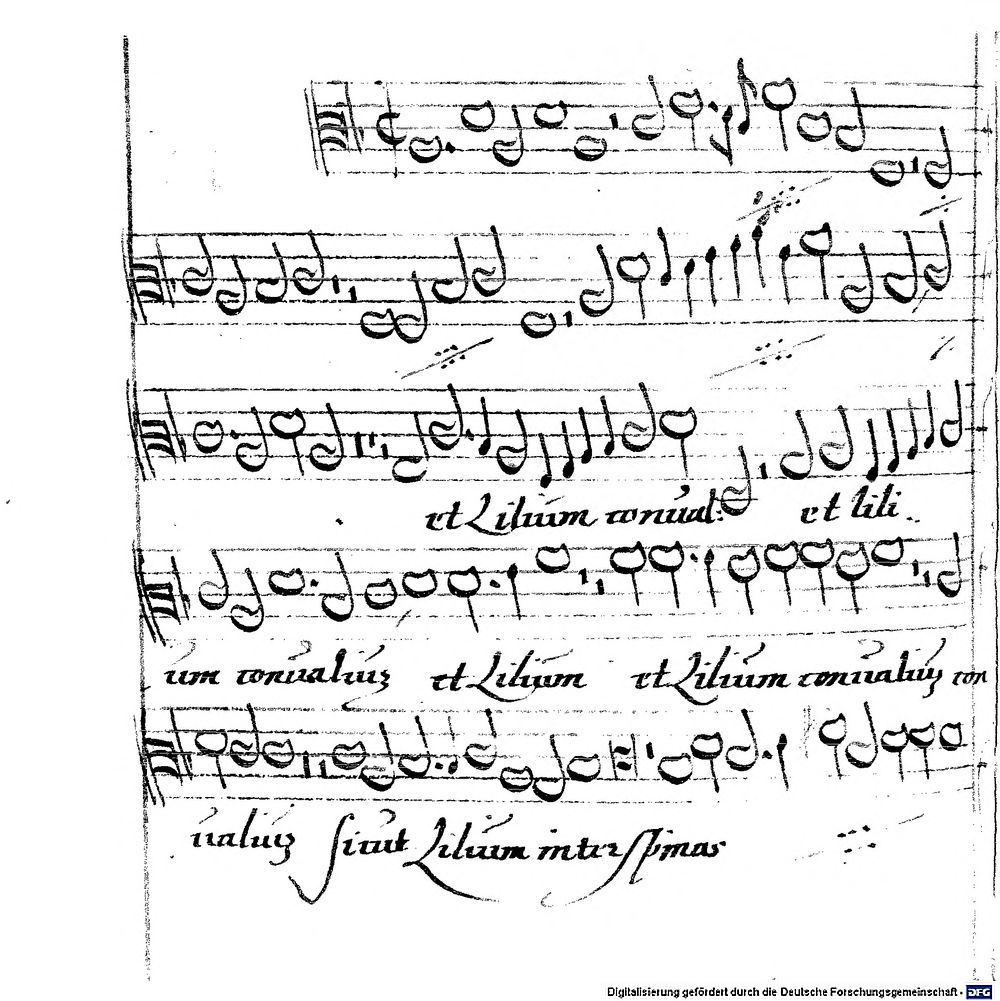 et Lilium conual: et lili
um conualiuz et Lilium et Lilium conualiuz con
ualiuz sicut Lilium inter spinas
Digitalisierung gefördert durch die Deutsche Forschungsgemeinschaft - DFG